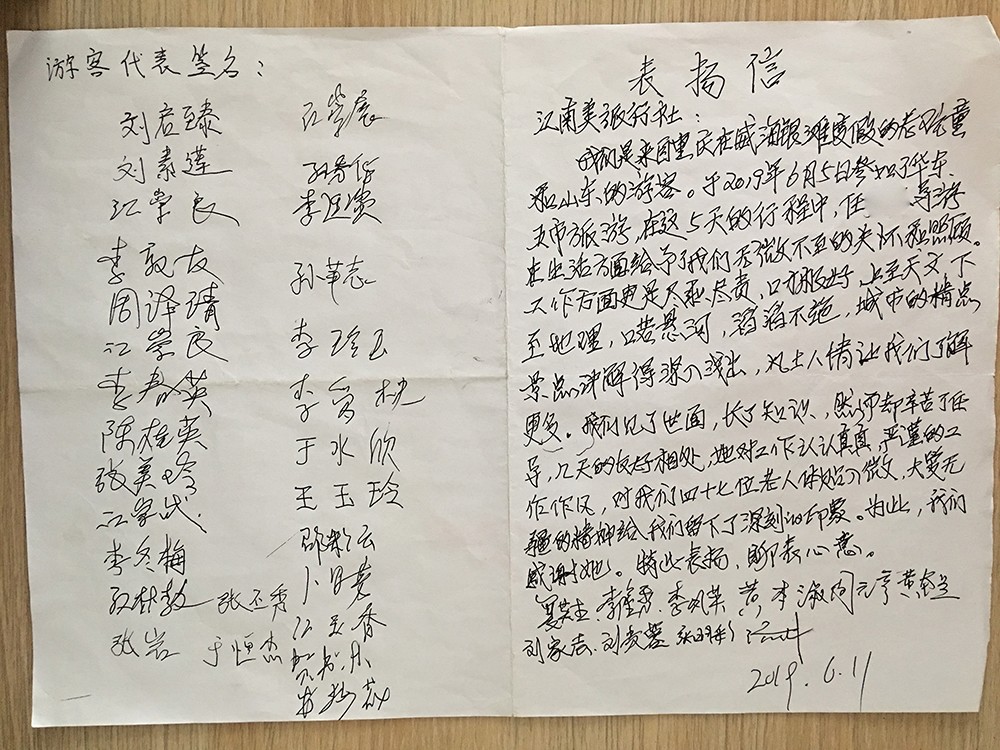 游客代表签名：
刘君臻
刘素莲
江学良
李敦友
周泽清
江学良
李春英
陈桂英
张美玲
江家成
李冬梅
张丕秀
张岩 于恒杰
李延贵
孙革志
李玲玉
李 桃
于水欣
王玉玲
邵彩云
江玉香
表扬信
江南美旅行社：
我们是来自重庆在威海银滩度假的老顽童
和山东的游客。于2019年6月5日参加了华东
五市旅游，在这5天的行程中，任 导游
在生活方面给予了我们无微不至的关怀和照顾。
工作方面更是尽职尽责，口才极好，上至天文，下
至地理，口若悬河，滔滔不绝，城市的精点
景点讲解得深入浅出，风土人情让我们了解
更多。我们见了世面，长了知识，然而却辛苦了任
导，几天的友好相处，她对工作认认真真，严谨的工
作作风，对我们四十七位老人体贴入微，大爱无
疆的精神给我们留下了深刻的印象。为此，我们
感谢她。特此表扬，聊表心意。
李明荣 黄奎兰
刘家志
2019.6.11